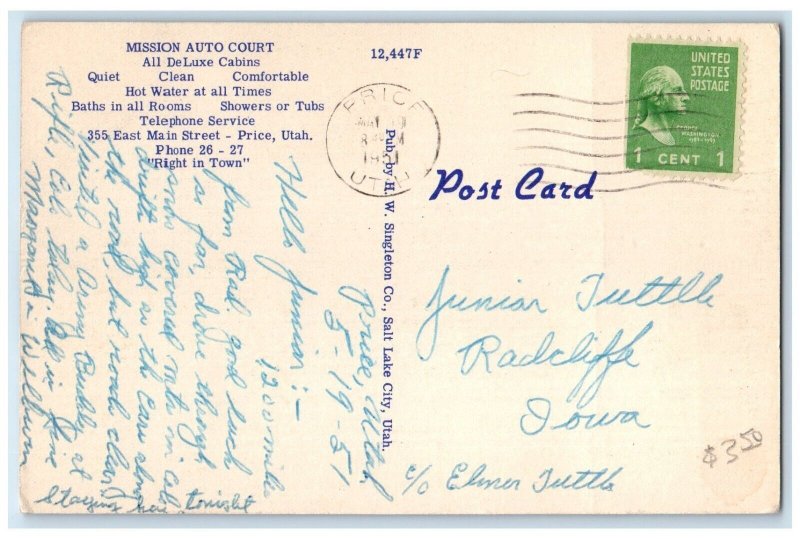 MISSION AUTO COURT
All DeLuxe Cabins
Quiet Clean Comfortable
Hot Water at all Times
Baths in all Rooms Showers or Tubs
Telephone Service
355 East Main Street - Price, Utah.
Phone 26 - 27
"Right in Town"
12,447F
PRICE
UTAH
UNITED
STATES
POSTAGE
GEORGE
WASHINGTON
1 CENT 1
Post Card
Pub. by H. W. Singleton Co., Salt Lake City, Utah.
Price, Utah
5-19-51
Hello Junior:-
1200 miles
from Rad. good luck
so far, drove through
snow covered mts in Col.
drifts high as the cars along
the road, but roads clear
visited a Army Buddy at
Rifle, Col. today. All is fine
Margaret - Wellman
Staying here tonight
Junior Tuttle
Radcliffe
Iowa
c/o Elmer Tuttle
$3.50